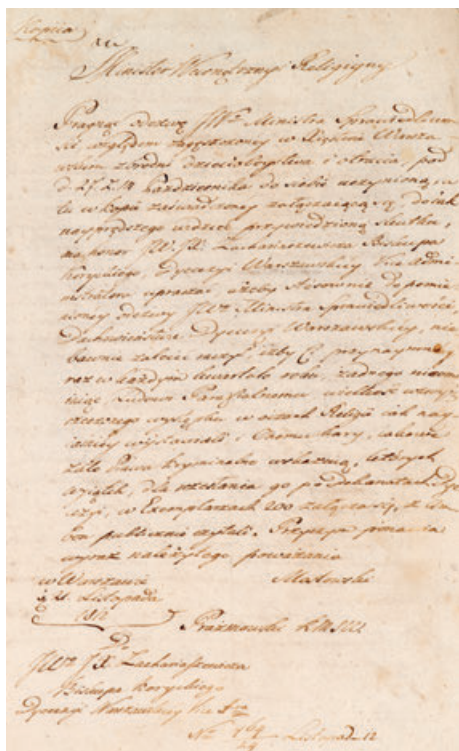 Kopiia
Minister Wewnętrzny i Religijny
Pragnąc odezwę JWo Ministra Sprawiedliwo
ści względem zagęszczonej w Xięstwie Warsza
wskim zbrodni dzieciobóystwa i otrucia, pod
d. 27. Października do siebie uczynioną, a
tu w kopii zaświadczoney załączającą się, do iak
nayprędszego widzieć przywiedzioną skutku,
ma honor JW. JX. Zachariaszewicza Biskupa
Koryckiego, Dyecezyi Warszawskiey
upraszać ażeby stosownie do pomie
nioney odezwy JWo Ministra Sprawiedliwości,
Duchowieństwu Dyecezyi Warszawskiey, nie
bawnie zalecić, iżby przynaymniey
raz w każdym kwartale roku, żadnego nieomi
iaiąc, Ludowi Parafialnemu wielkość
występku w oczach Religii iak nay
i Onemu kary, iakowe
za to Prawa kryminalne wskazuią, których
wyiątek, dla rozesłania go po Dekanatach Dye
cezyi, w Exemplarzach 200 załącza się, z Am
bon publicznie czytali. Przyym
wyraz należytego poważania
w Warszawie Mostowski
d. 21 Listopada
1812
Prażmowski
Do
JWo JX. Zachariaszewicza
Biskupa Koryckiego
Dyecezyi Warszawskiey
No Listopad. 12